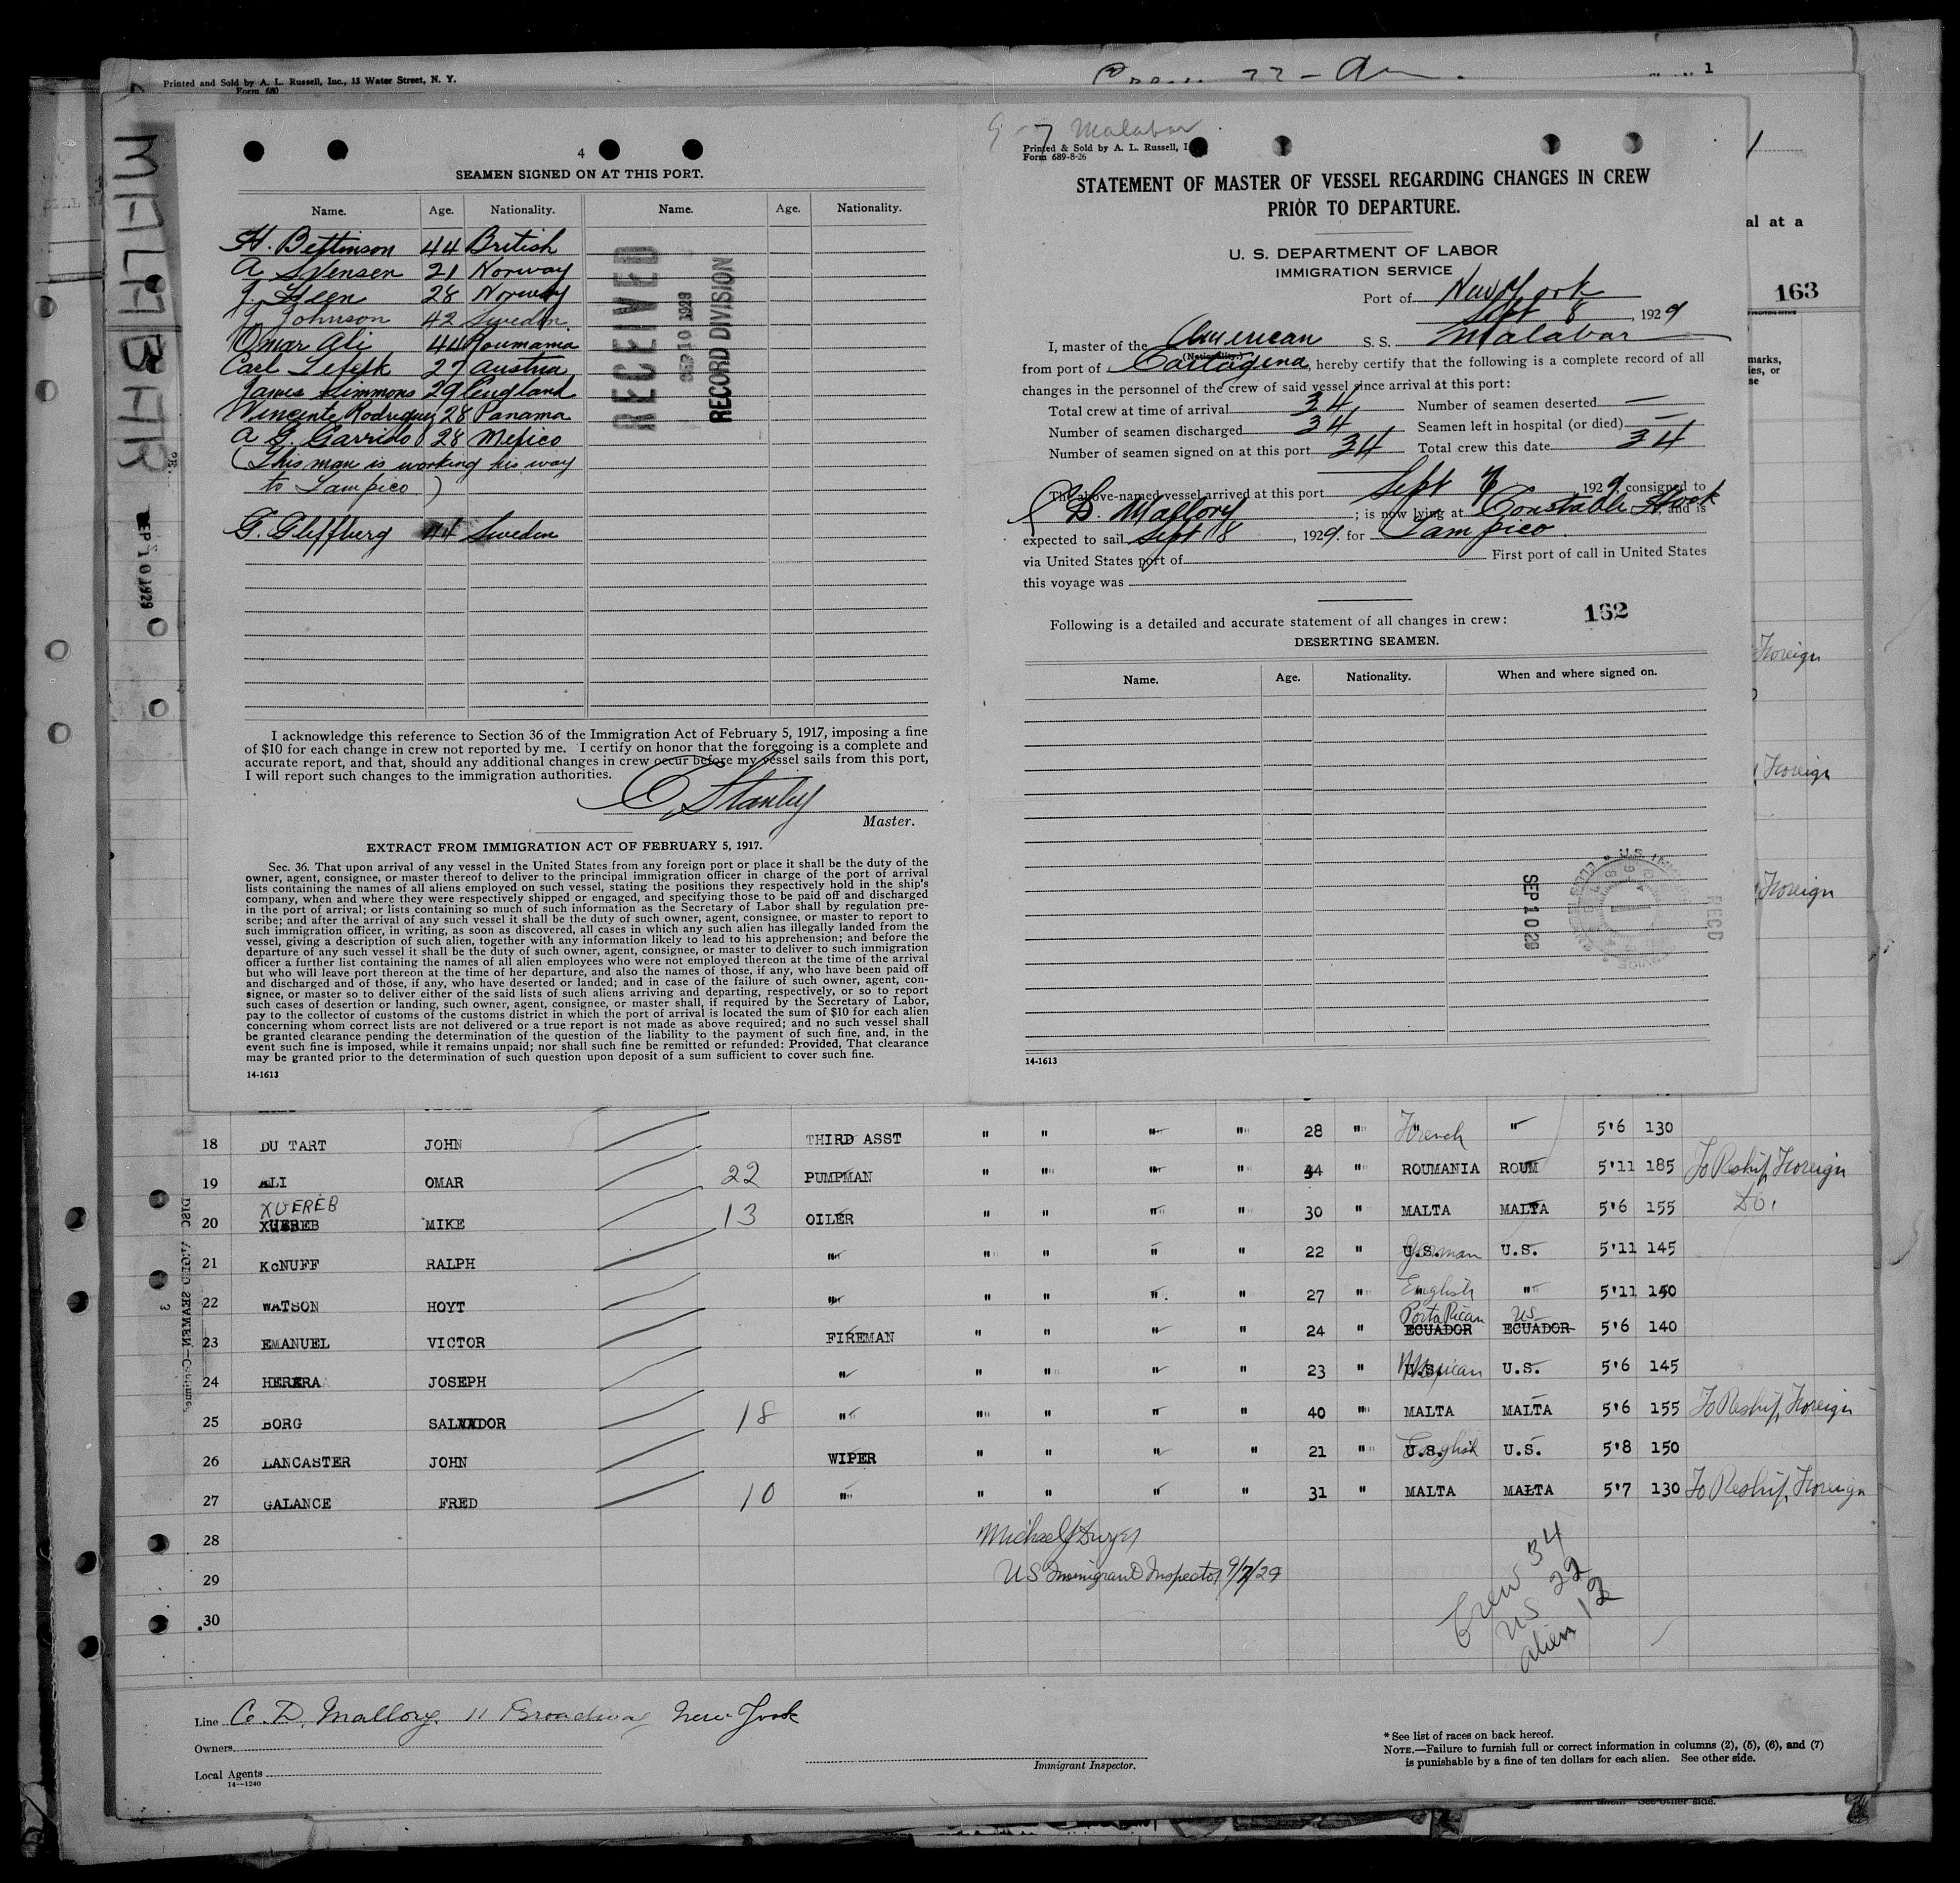 Printed and Sold by A. L. Russell, Inc., 13 Water Street, N. Y.
Form 680
1
MALABAR
SEP 10 1929
4
SEAMEN SIGNED ON AT THIS PORT.
Name. Age. Nationality. Name. Age. Nationality.
H. Bettinson 44 British
A Svensen 21 Norway
J. Steen 28 Norway
J. Johnson 42 Sweden.
Omar Ali 44 Roumania
Carl 27 Austria
James Simmons 29 England
Vincente Rodriguez 28 Panama
A G. Garrido 28 Mexico
(This man is working his way
to Tampico)
G. 44 Sweden
RECEIVED
SEP 10 1929
RECORD DIVISION
I acknowledge this reference to Section 36 of the Immigration Act of February 5, 1917, imposing a fine
of $10 for each change in crew not reported by me. I certify on honor that the foregoing is a complete and
accurate report, and that, should any additional changes in crew occur before my vessel sails from this port,
I will report such changes to the immigration authorities.
C Stanley
Master.
EXTRACT FROM IMMIGRATION ACT OF FEBRUARY 5, 1917.
Sec. 36. That upon arrival of any vessel in the United States from any foreign port or place it shall be the duty of the
owner, agent, consignee, or master thereof to deliver to the principal immigration officer in charge of the port of arrival
lists containing the names of all aliens employed on such vessel, stating the positions they respectively hold in the ship's
company, when and where they were respectively shipped or engaged, and specifying those to be paid off and discharged
in the port of arrival; or lists containing so much of such information as the Secretary of Labor shall by regulation pre-
scribe; and after the arrival of any such vessel it shall be the duty of such owner, agent, consignee, or master to report to
such immigration officer, in writing, as soon as discovered, all cases in which any such alien has illegally landed from the
vessel, giving a description of such alien, together with any information likely to lead to his apprehension; and before the
departure of any such vessel it shall be the duty of such owner, agent, consignee, or master to deliver to such immigration
officer a further list containing the names of all alien employees who were not employed thereon at the time of the arrival
but who will leave port thereon at the time of her departure, and also the names of those, if any, who have been paid off
and discharged and of those, if any, who have deserted or landed; and in case of the failure of such owner, agent, con-
signee, or master so to deliver either of the said lists of such aliens arriving and departing, respectively, or so to report
such cases of desertion or landing, such owner, agent, consignee, or master shall, if required by the Secretary of Labor,
pay to the collector of customs of the customs district in which the port of arrival is located the sum of $10 for each alien
concerning whom correct lists are not delivered or a true report is not made as above required; and no such vessel shall
be granted clearance pending the determination of the question of the liability to the payment of such fine, and, in the
event such fine is imposed, while it remains unpaid; nor shall such fine be remitted or refunded: Provided, That clearance
may be granted prior to the determination of such question upon deposit of a sum sufficient to cover such fine.
14-1613
9-7 Malabar
Printed & Sold by A. L. Russell, I
Form 689-8-26
STATEMENT OF MASTER OF VESSEL REGARDING CHANGES IN CREW
PRIOR TO DEPARTURE.
U. S. DEPARTMENT OF LABOR
IMMIGRATION SERVICE
Port of New York
Sept 8, 1929
I, master of the American S. S. Malabar
(Nationality.)
from port of Cartagena, hereby certify that the following is a complete record of all
changes in the personnel of the crew of said vessel since arrival at this port:
Total crew at time of arrival 34 Number of seamen deserted —
Number of seamen discharged 34 Seamen left in hospital (or died) —
Number of seamen signed on at this port 34 Total crew this date 34
The above-named vessel arrived at this port Sept 7, 1929, consigned to
C. D. Mallory; is now lying at Constable Hook, and is
expected to sail Sept 8, 1929. for Tampico.
via United States port of First port of call in United States
this voyage was
162
Following is a detailed and accurate statement of all changes in crew:
DESERTING SEAMEN.
Name. Age. Nationality. When and where signed on.
SEP 10 29
RECD
14-1613
al at a
163
marks,
ies, or
se
Foreign
Foreign
Foreign
18 DU TART JOHN THIRD ASST " " " " 28 " French " 5'6 130
19 ALI OMAR 22 PUMPMAN " " " " 44 " ROUMANIA ROUM 5'11 185 To Reship Foreign
XUEREB
20 XUEREB MIKE 13 OILER " " " " 30 " MALTA MALTA 5'6 155 Do.
21 McNUFF RALPH " " " " " 22 " U.S. German U.S. 5'11 145
22 WATSON HOYT " " " " " 27 " English " 5'11 150
Porta Rican US
23 EMANUEL VICTOR FIREMAN " " " " 24 " ECUADOR ECUADOR 5'6 140
24 HERERA JOSEPH " " " " " 23 " U.S. Mexican U.S. 5'6 145
25 BORG SALVADOR 18 " " " " " 40 " MALTA MALTA 5'6 155 To Reship Foreign
26 LANCASTER JOHN WIPER " " " " 21 " U.S. English U.S. 5'8 150
27 GALANCE FRED 10 " " " " " 31 " MALTA MALTA 5'7 130 To Reship Foreign
28 Michael J Dwyer
29 US Immigrant Inspector 9/7/29
30
Crew 34
US 22
alien 12
Line C. D. Mallory. 11 Broadway New York
Owners
Local Agents
14—1240
Immigrant Inspector.
* See list of races on back hereof.
NOTE.—Failure to furnish full or correct information in columns (2), (5), (6), and (7)
is punishable by a fine of ten dollars for each alien. See other side.
See other side.